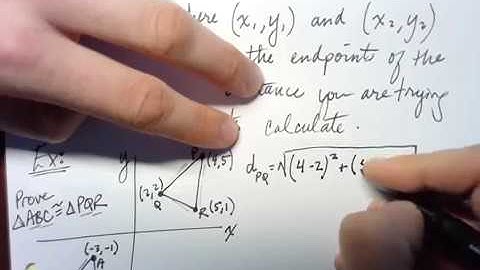 here (x₁,y₁) and (x₂,y₂)
the endpoints of the
distance you are trying
calculate.
Ex:
Prove
△ABC≅△PQR
y
P
(4,5)
(2,2)
Q
R (5,1)
x
(-3,-1)
A
d_PQ=√(4-2)²+(